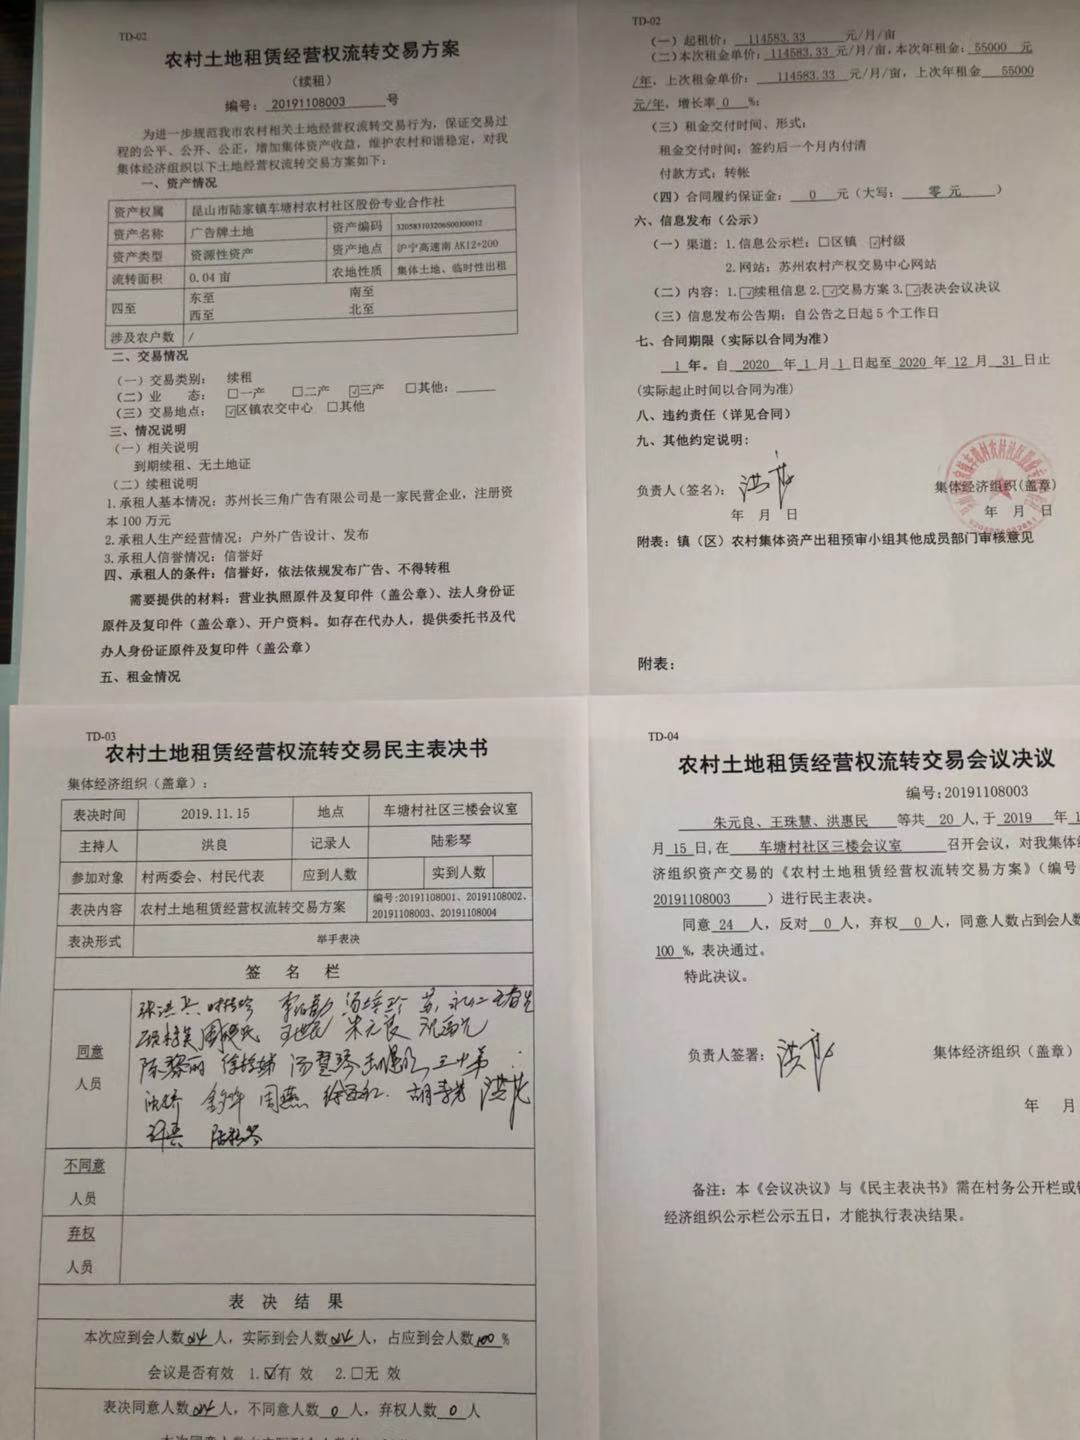 TD-02
农村土地租赁经营权流转交易方案
（续租）
编号：20191108003号
为进一步规范我市农村相关土地经营权流转交易行为，保证交易过
程的公平、公开、公正，增加集体资产收益，维护农村和谐稳定，对我
集体经济组织以下土地经营权流转交易方案如下：
一、资产情况
资产权属 昆山市陆家镇车塘村农村社区股份专业合作社
资产名称 广告牌土地 资产编码
资产类型 资源性资产 资产地点 沪宁高速南 AK12+200
流转面积 0.04 亩 农地性质 集体土地、临时性出租
四至 东至 南至
西至 北至
涉及农户数 /
二、交易情况
（一）交易类别： 续租
（二）业 态： □一产 □二产 ☑三产 □其他：
（三）交易地点： ☑区镇农交中心 □其他
三、情况说明
（一）相关说明
到期续租、无土地证
（二）续租说明
1.承租人基本情况：苏州长三角广告有限公司是一家民营企业，注册资
本100万元
2.承租人生产经营情况：户外广告设计、发布
3.承租人信誉情况：信誉好
四、承租人的条件：信誉好，依法依规发布广告、不得转租
需要提供的材料：营业执照原件及复印件（盖公章）、法人身份证
原件及复印件（盖公章）、开户资料。如存在代办人，提供委托书及代
办人身份证原件及复印件（盖公章）
五、租金情况
TD-02
（一）起租价：114583.33 元/月/亩
（二）本次租金单价：114583.33 元/月/亩，本次年租金：55000 元
/年，上次租金单价： 114583.33 元/月/亩，上次年租金 55000
元/年，增长率 0 %；
（三）租金交付时间、形式：
租金交付时间：签约后一个月内付清
付款方式：转帐
（四）合同履约保证金： 0 元（大写： 零 元 ）
六、信息发布（公示）
（一）渠道：1.信息公示栏：□区镇 ☑村级
2.网站：苏州农村产权交易中心网站
（二）内容：1.☑续租信息 2.☑交易方案 3.☑表决会议决议
（三）信息发布公告期：自公告之日起5个工作日
七、合同期限（实际以合同为准）
1 年。自 2020 年 1 月 1 日起至 2020 年 12 月 31 日止
(实际起止时间以合同为准)
八、违约责任（详见合同）
九、其他约定说明：
负责人（签名）：
集体经济组织(盖章)
年 月 日
年 月 日
附表：镇（区）农村集体资产出租预审小组其他成员部门审核意见
附表：
TD-03
农村土地租赁经营权流转交易民主表决书
集体经济组织（盖章）：
表决时间 2019.11.15 地点 车塘村社区三楼会议室
主持人 洪良 记录人 陆彩琴
参加对象 村两委会、村民代表 应到人数 实到人数
表决内容 农村土地租赁经营权流转交易方案 编号:20191108001、20191108002、
20191108003、20191108004
表决形式 举手表决
签 名 栏
同意
人员
朱元良
周燕
不同意
人员
弃权
人员
表 决 结 果
本次应到会人数24人，实际到会人数24人，占应到会人数100%
会议是否有效 1.☑有 效 2.□无 效
表决同意人数24人，不同意人数 0 人，弃权人数 0 人
TD-04
农村土地租赁经营权流转交易会议决议
编号:20191108003
朱元良、王珠慧、洪惠民 等共 20 人，于 2019 年 1
月 15 日，在 车塘村社区三楼会议室 召开会议，对我集体
济组织资产交易的《农村土地租赁经营权流转交易方案》（编号
20191108003 ）进行民主表决。
同意 24 人，反对 0 人，弃权 0 人，同意人数占到会人
100 %，表决通过。
特此决议。
负责人签署：
集体经济组织（盖章）
年 月
备注：本《会议决议》与《民主表决书》需在村务公开栏或
经济组织公示栏公示五日，才能执行表决结果。